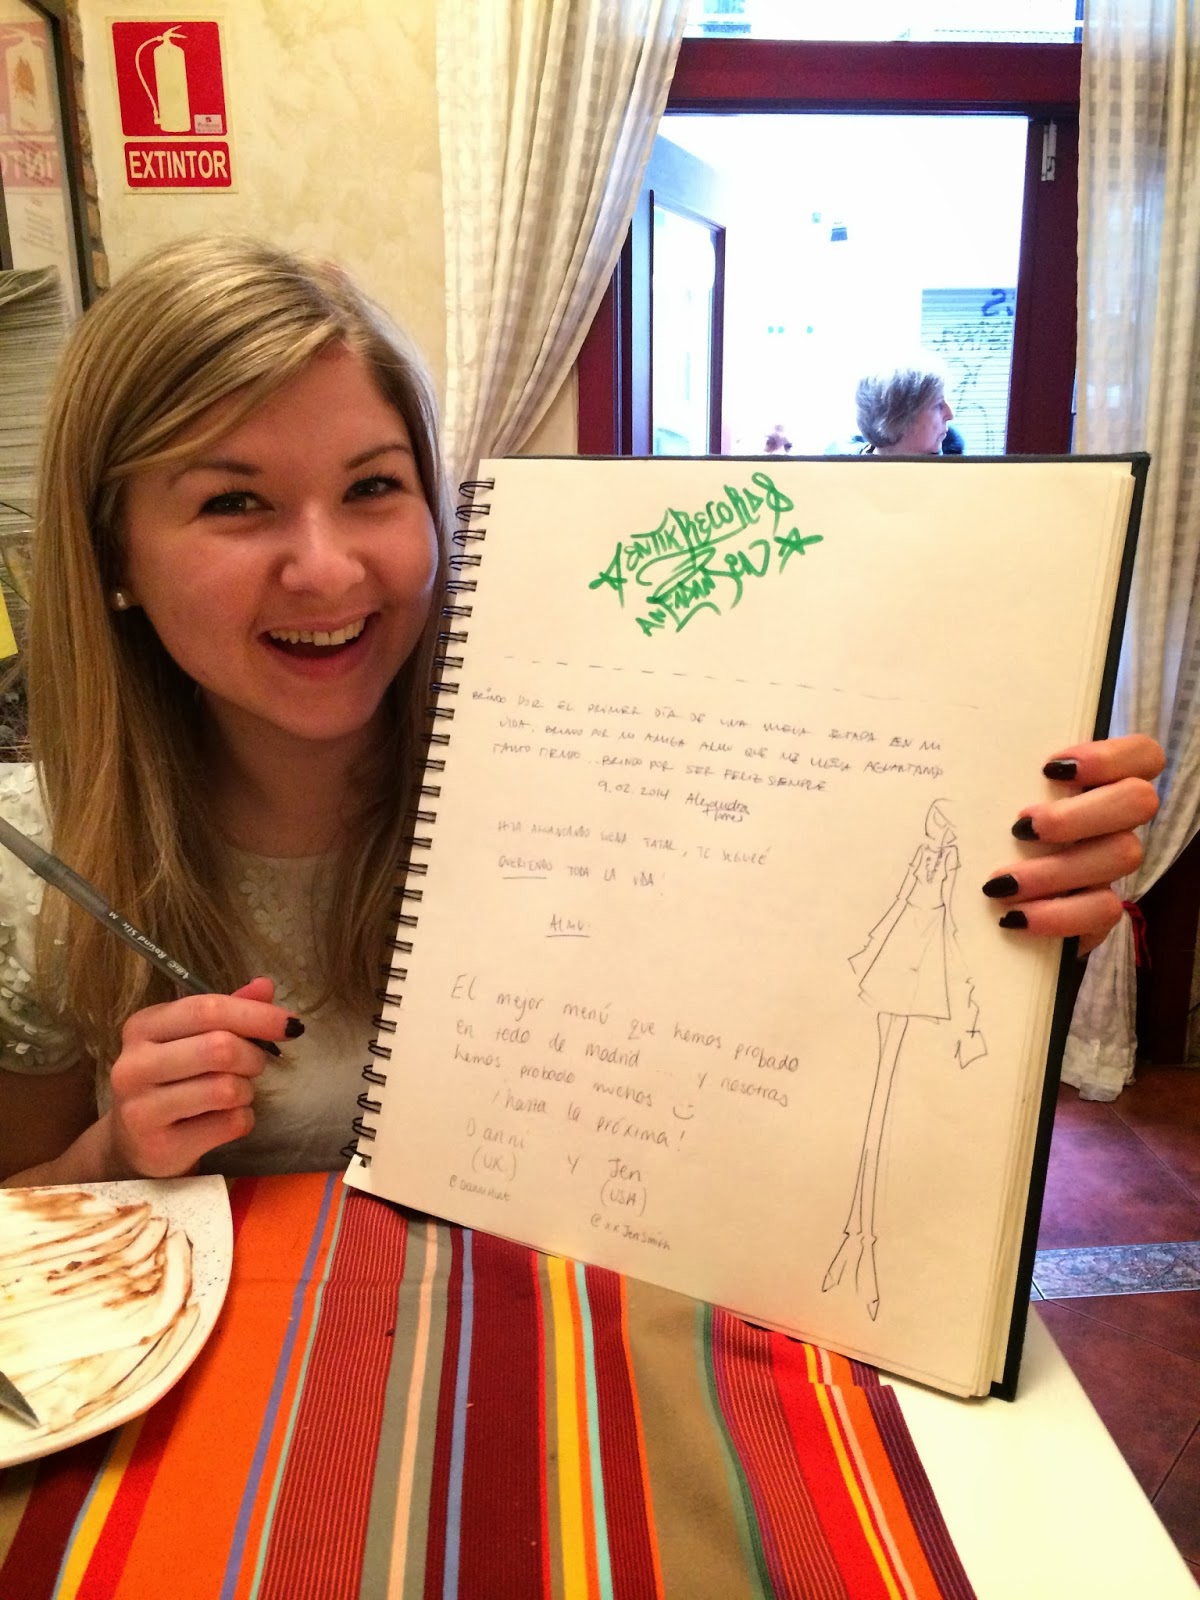 EXTINTOR
BRINDO POR EL PRIMER DÍA DE UNA NUEVA ETAPA EN MI
VIDA, BRINDO POR MI AMIGA ALMU QUE ME LLEVA AGUANTANDO
TANTO TIEMPO... BRINDO POR SER FELIZ SIEMPRE
9.02.2014 Alejandra
TE SEGUIRÉ
QUERIENDO TODA LA VIDA!
ALMU.
El mejor menú que hemos probado
en todo de Madrid... y nosotras
hemos probado muchos :)
¡hasta la próxima!
Danni y Jen
(UK) (USA)
@xxJenSmith
BIC Round Stic M